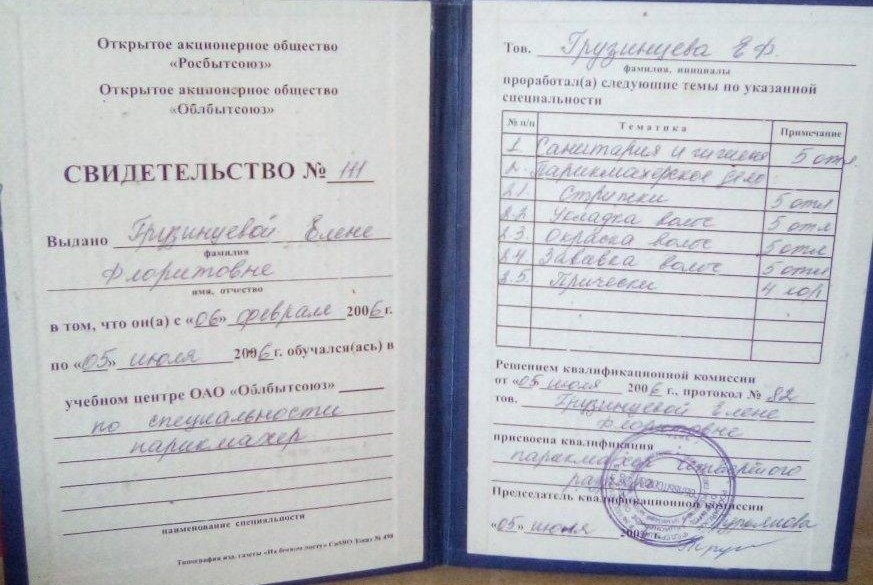 Открытое акционерное общество
«Росбытсоюз»
Открытое акционерное общество
«Облбытсоюз»
СВИДЕТЕЛЬСТВО № 111
Выдано Грузинцевой Елене
фамилия
Флоритовне
имя, отчество
в том, что он(а) с «06» февраля 2006 г.
по «05» июля 2006 г. обучался(ась) в
учебном центре ОАО «Облбытсоюз»
по специальности
парикмахер
наименование специальности
Типография изд. газеты «На боевом посту» Заказ № 450
Тов. Грузинцева Е.Ф.
фамилия, инициалы
проработал(а) следующие темы по указанной
специальности
№ п/п Тематика Примечание
1. Санитария и гигиена 5 отл.
2. Парикмахерское дело
2.1 Стрижки 5 отл
2.2. Укладка волос 5 отл
2.3. Окраска волос 5 отл
2.4. Завивка волос 5 отл
2.5. Прически 4 хор
Решением квалификационной комиссии
от «05» июля 2006 г., протокол № 82
тов. Грузинцевой Елене
Флоритовне
присвоена квалификация
парикмахер четвёртого
разряда
Председатель квалификационной комиссии
«05» июля 200